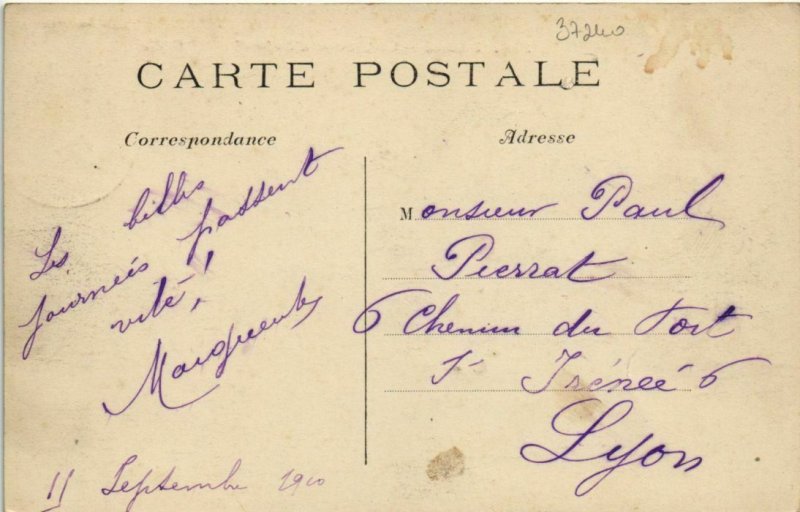 37240
CARTE POSTALE
Correspondance
Adresse
Les belles
journées passent
vite!
Marguerite
11 Septembre 1910
Monsieur Paul
Pierrat
6 Chemin du Fort
St Irénée 6
Lyon